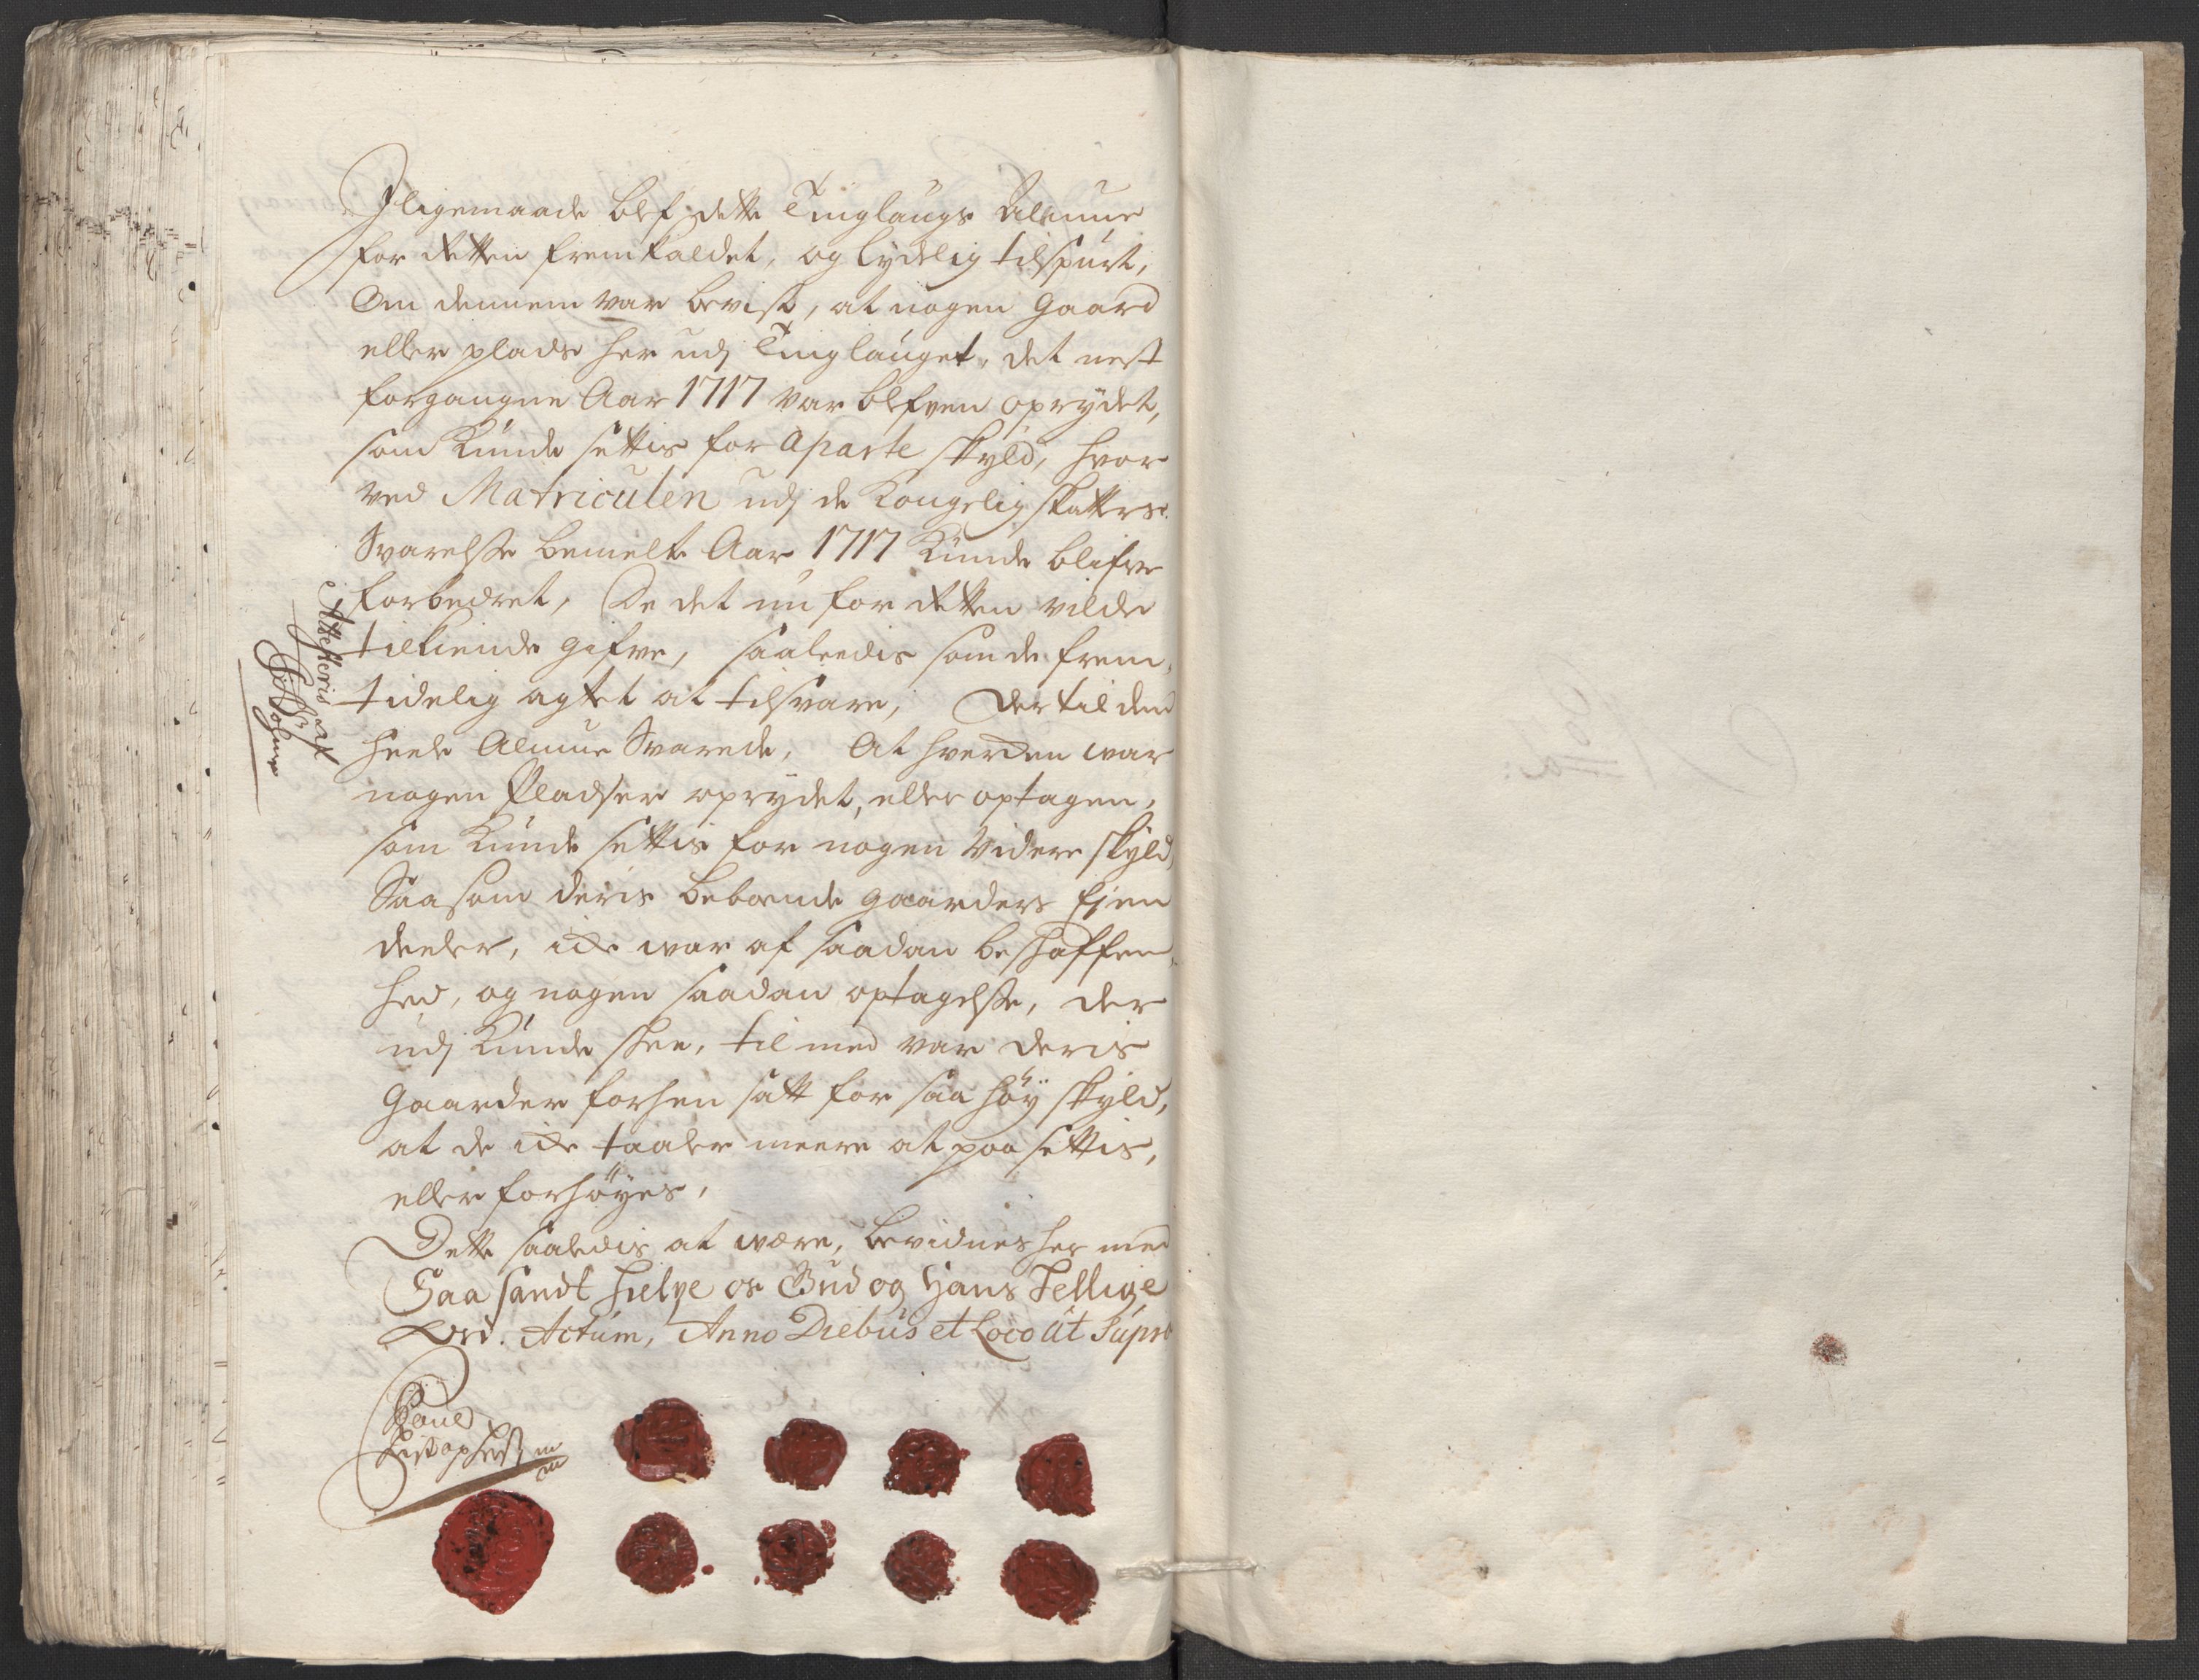 Iligemaade blef dette Tinglaugs Almue
for Retten fremkaldet, og lydelig tilspurt,
Om dennem var bevist, at nogen Gaard
eller plads her udj Tinglauget, det nest
forgangne Aar 1717 var blefven oprydet,
som kunde settis for aparte skyld, hvor
ved Matriculen udj de Kongelig skatters
Svarelse bemelte Aar 1717 kunde blifve
forbedret, De det nu for Retten vilde
tilkiende gifve, saaledis som de frem,
tidelig agtet at tilsvare, Dertil den
heele Almue Svarede, At hverken war
nogen Pladser oprydet, eller optagen,
som kunde settis for nogen videre skyld,
Saasom deris beboende gaarders Ejen
deeler, icke war af saadan beskaffen,
hed, og nogen saadan optagelse, der
udj kunde skee, til med var deris
Gaarder forhen satt for saa høy skyld,
at de icke taaler meere at paasettis,
eller forhøyes,
Dette saaledis at være, bevidnes her med
Saa sandt hielpe os Gud og Hans Hellige
Ord. Actum, Anno Diebus et Loco ut Supra
Attesteris af
Povel